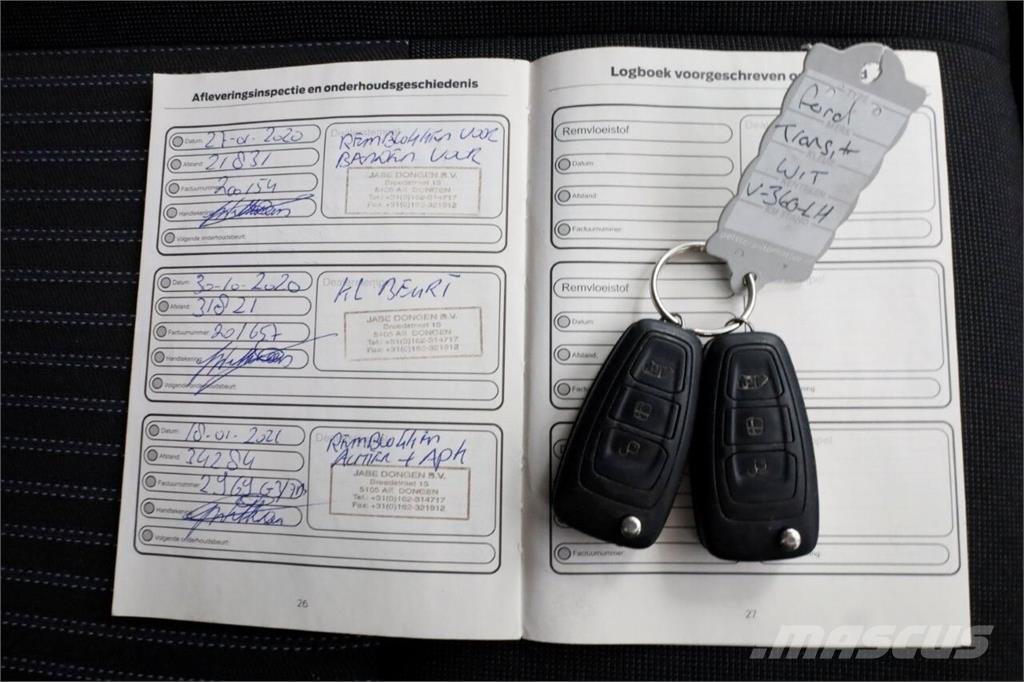 Afleveringsinspectie en onderhoudsgeschiedenis
Datum: 27-01-2020
Afstand: 21831
Factuurnummer: 200154
Handtekening:
Volgende onderhoudsbeurt:
REMBLOKKEN VOOR
BANDEN VOOR
JABE DONGEN B.V.
Breedstraat 15
5105 AE DONGEN
Tel.: +31(0)162-314717
Fax: +31(0)162-321912
Datum: 30-10-2020
Afstand: 31821
Factuurnummer: 201657
Handtekening:
Volgende onderhoudsbeurt:
KL BEURT
JABE DONGEN B.V.
Breedstraat 15
5105 AE DONGEN
Tel.: +31(0)162-314717
Fax: +31(0)162-321912
Datum: 18-01-2021
Afstand: 34284
Factuurnummer:
Handtekening:
Volgende onderhoudsbeurt:
REMBLOKKEN
ACHTER + APK
JABE DONGEN B.V.
Breedstraat 15
5105 AE DONGEN
Tel.: +31(0)162-314717
Fax: +31(0)162-321912
26
Logboek voorgeschreven
Remvloeistof
Datum:
Afstand:
Factuurnummer:
Remvloeistof
Datum:
Afstand:
Factuurnummer:
27
Ford
Transit
WIT
V-360-LH
MASCUS